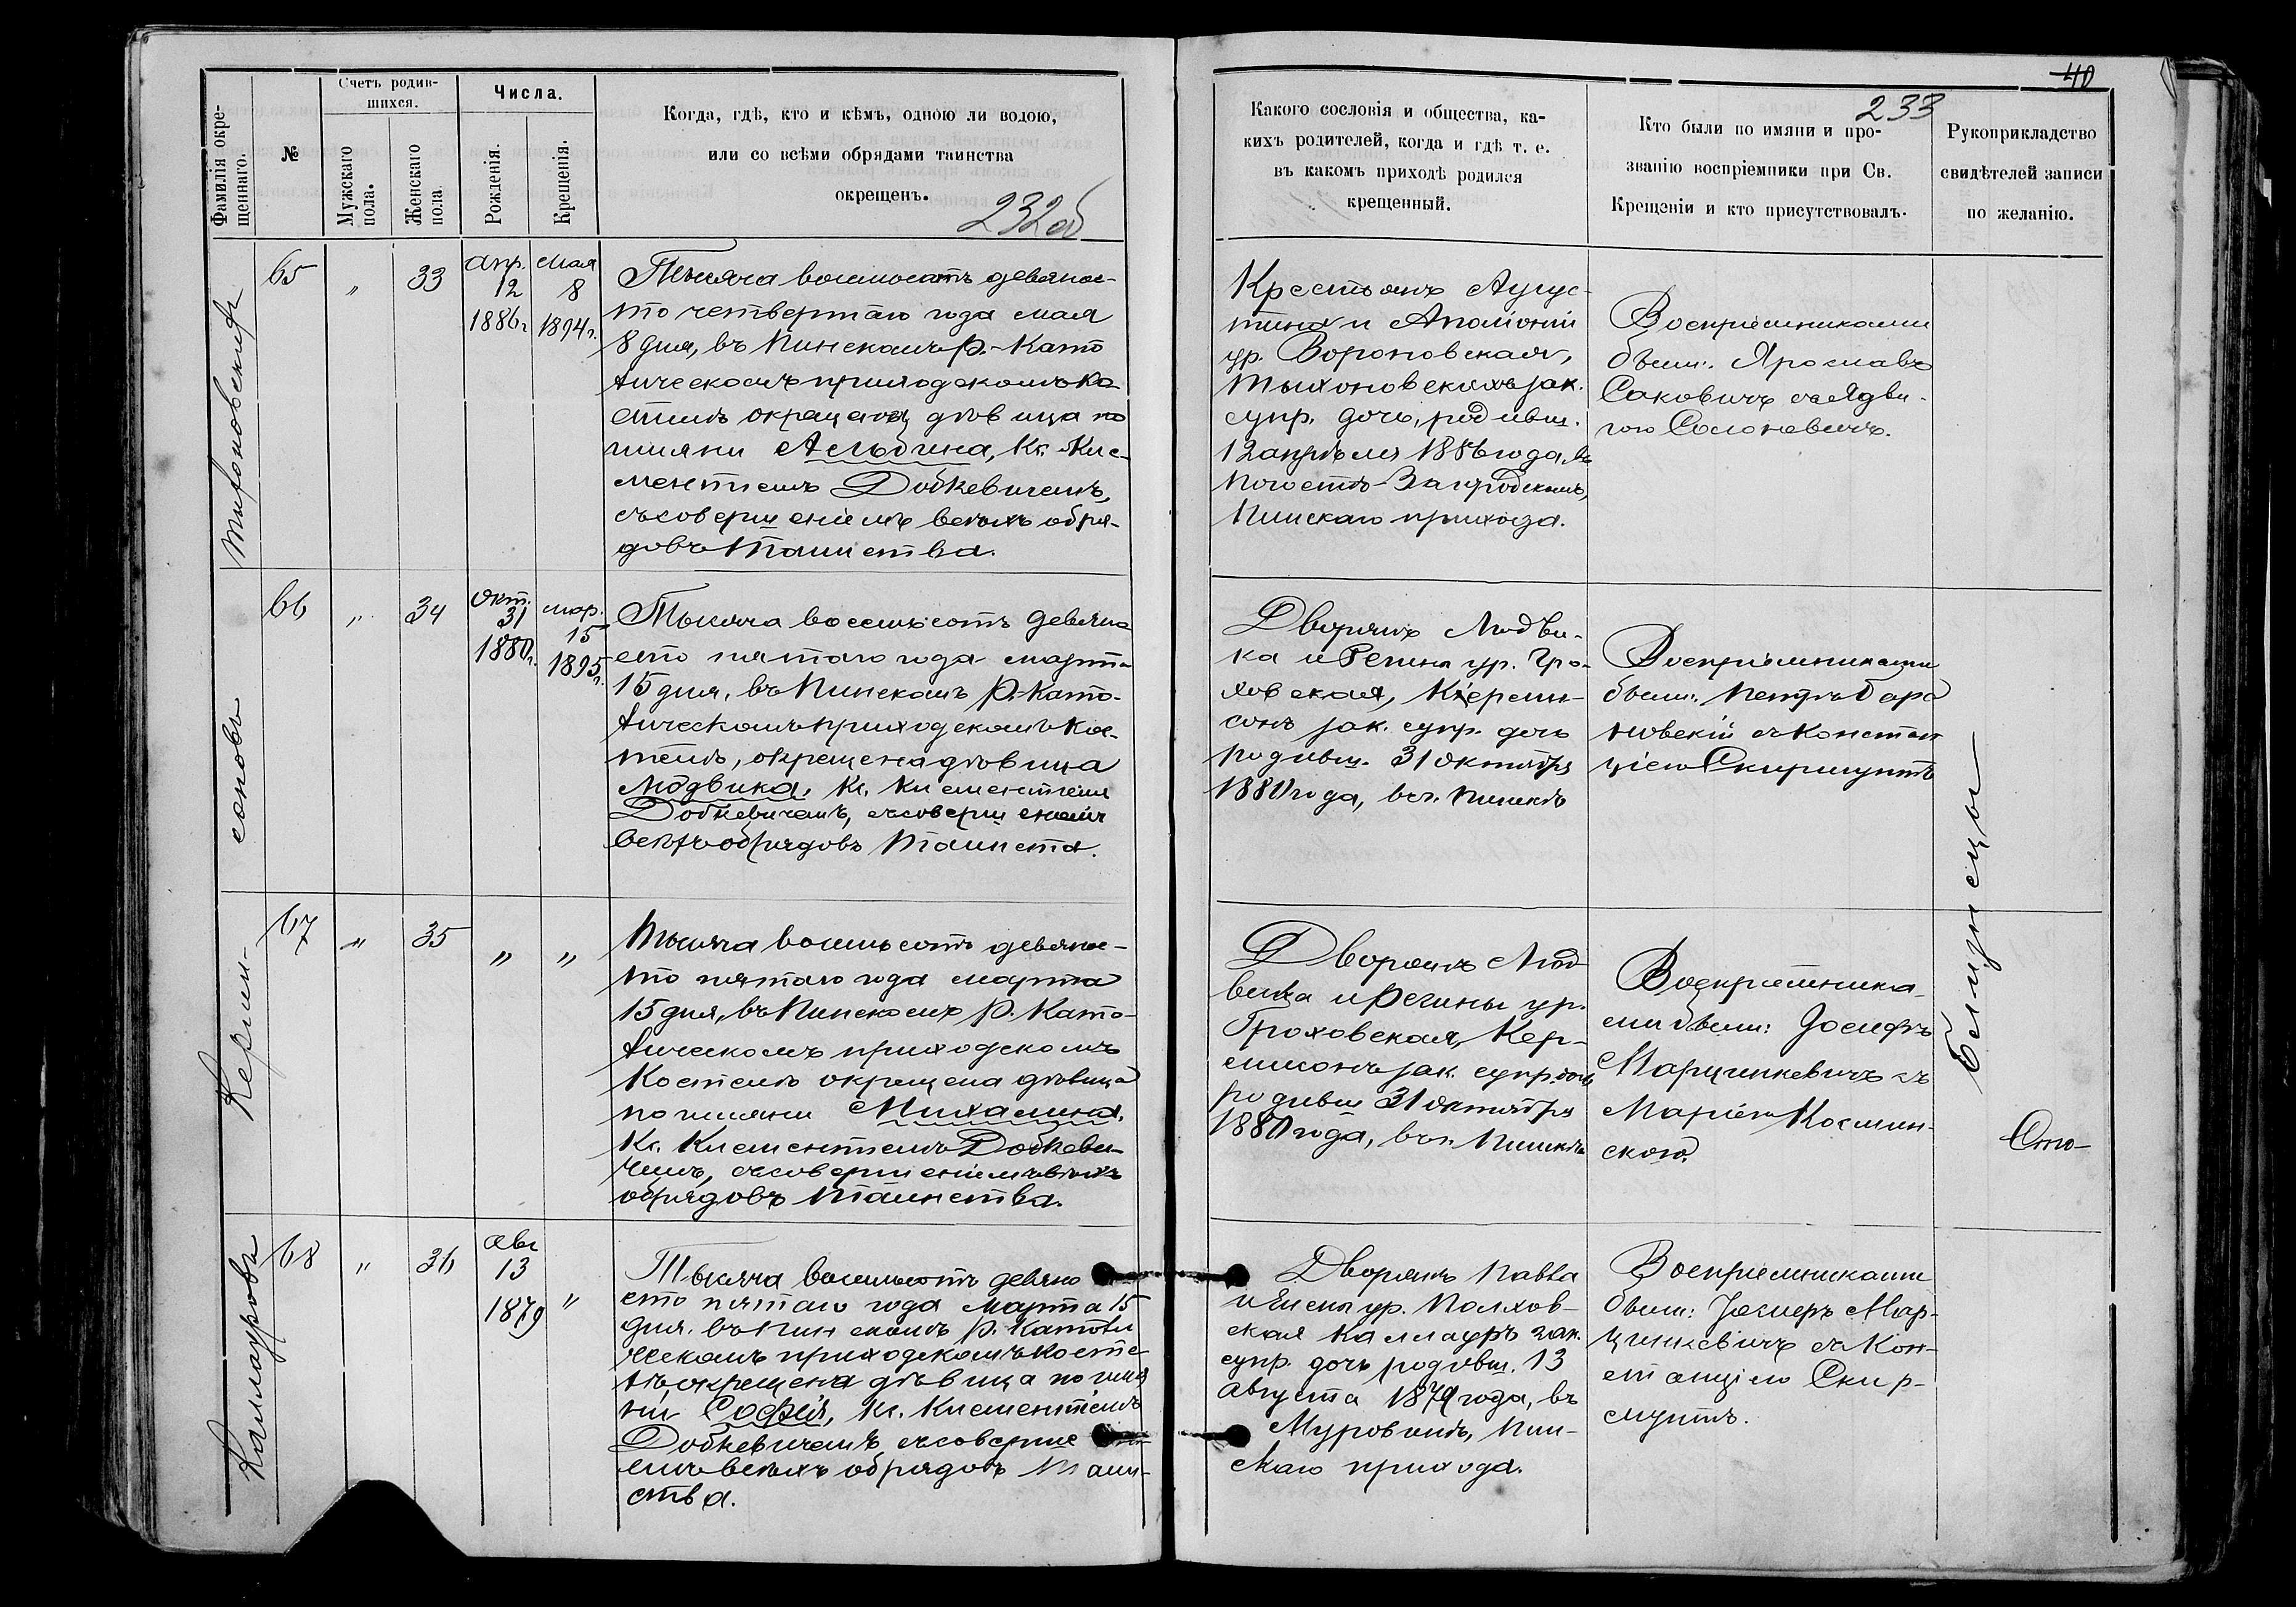 Фамилія окре-
щеннаго.
№
Счетъ родив-
шихся.
Мужскаго
пола.
Женскаго
пола.
Числа.
Рожденія.
Крещенія.
Когда, гдѣ, кто и кѣмъ, одною ли водою,
или со всѣми обрядами таинства
окрещенъ.
232об
Тыхоновскихъ
65
"
33
Апр.
12
1886г.
Мая
8
1894г.
Тысяча восьмьсотъ девянос-
то четвертаго года мая
8 дня, въ Пинскомъ Р.-Като
лическомъ приходскомъ ко
стелѣ окрещена дѣвица по
имяни Альбина, Кс. Кле-
ментіемъ Добкевичемъ,
съ совершеніемъ всѣхъ обря-
довъ Таинства.
66
"
34
Окт.
31
1880г.
мар.
15
1895г.
Тысяча восемьсотъ девяно
сто пятаго года марта
15 дня, въ Пинскомъ Р.-Като-
лическомъ приходскомъ кос-
телѣ, окрещена дѣвица
Людвика, Кс. Клементіем
Добкевичемъ, съ совершеніемъ
всѣхъ обрядовъ Таинста.
Керсн-
соновъ
67
"
35
"
"
Тысяча восемьсотъ девянос-
то пятаго года марта
15 дня, въ Пинскомъ Р. Като-
лическомъ приходскомъ
Костелѣ окрещена дѣвица
по имяни Михалина,
Кс. Клементіемъ Добкеви-
чемъ, съ совершеніемъ всѣхъ
обрядовъ Таинства.
Каллауровъ
68
"
36
Авг
13
1879
"
Тысяча восемьсотъ девяно
сто пятаго года Марта 15
дня, въ Пинскомъ Р. Католи
ческомъ приходскомъ косте-
лѣ, окрещена дѣвица по имя
ни Софія, Кс. Клементіемъ
Добкевичемъ, съ соверше
емъ всѣхъ обрядовъ Таин-
ства.
40
233
Какого сословія и общества, ка-
кихъ родителей, когда и гдѣ т. е.
въ какомъ приходѣ родился
крещенный.
Кто были по имяни и про-
званію воспріемники при Св.
Крещеніи и кто присутствовалъ.
Рукоприкладство
свидѣтелей записи
по желанію.
Крестьянъ Аугус-
тина и Аполоніи
ур. Вороновская,
Тыхоновскихъ зак.
супр. дочь, родивш.
12 апрѣля 1886 года, въ
Погостѣ-Загродскомъ,
Пинскаго прихода.
Воспріемниками
были: Ярославъ
Саковичъ съ Ядви-
гою Солоневичъ.
Дворянъ Людви-
ка и Регины ур. Гро-
ховская, Керсн-
сонъ зак. супр. дочь
родивш. 31 октября
1880 года, въ г. Пинскѣ
Воспріемниками
были: Петръ Бара
новскій съ Констан
ціею Скирмунтъ
Дворянъ Люд-
вика и Регины ур.
Гроховская, Кер-
снсонъ зак. супр. дочь
родивш 31 октября
1880 года, въ г. Пинскѣ
Воспріемника-
ми были: Іосифъ
Марцинкевичъ съ
Маріею Космин-
скою.
близнецы
Сто-
Дворянъ Павла
и Елены ур. Полхов-
ская Каллауръ зак.
супр. дочь родивш. 13
Августа 1879 года, въ
Муровинѣ, Пин-
скаго прихода.
Воспріемниками
были: Іосифъ Мар-
цинкевичъ съ Кон-
станціею Скир-
мунтъ.